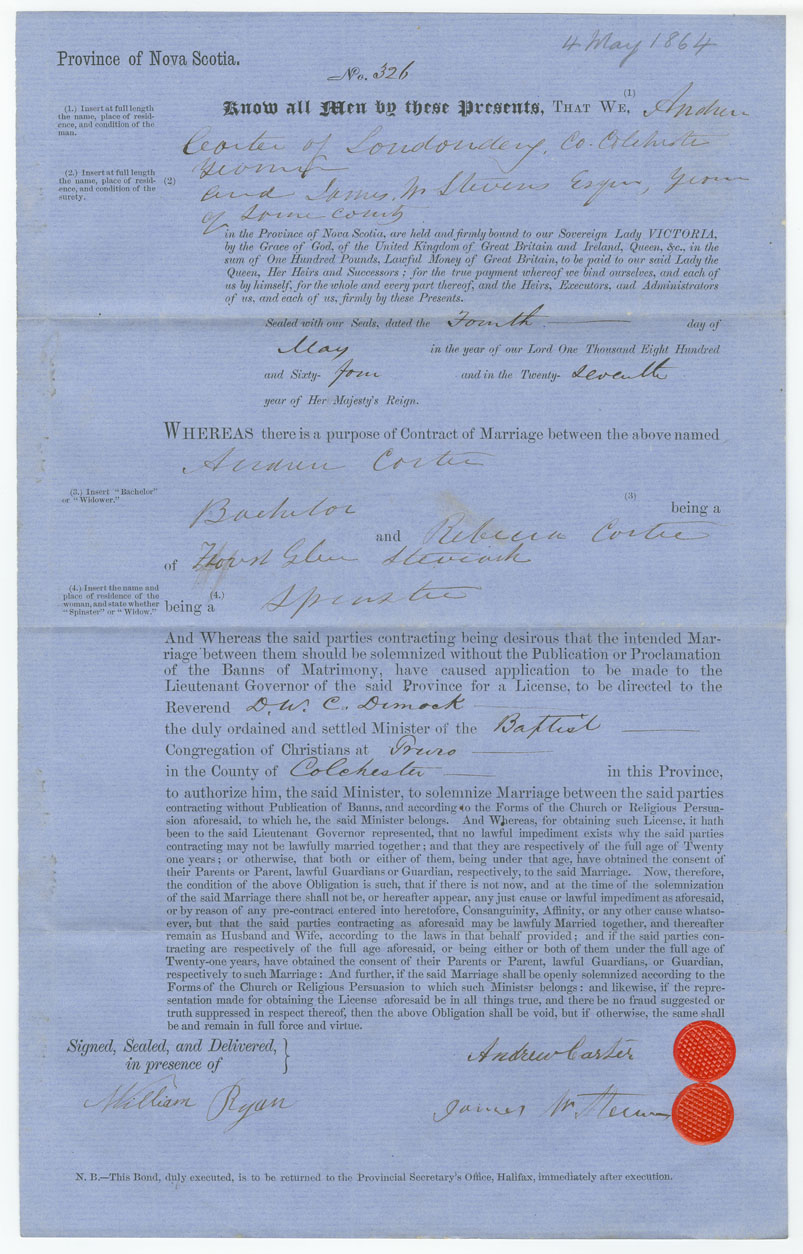 4 May 1864
Province of Nova Scotia.
No. 326
(1.) Insert at full length
the name, place of resid-
ence, and condition of the
man.
Know all Men by these Presents, THAT WE, (1) Andrew
Carter of Londondery, Co. Colchester
Yeoman
(2.) Insert at full length
the name, place of resid-
ence, and condition of the
surety.
(2) and James W Stevens Esqr, Yeom
of Same County
in the Province of Nova Scotia, are held and firmly bound to our Sovereign Lady VICTORIA,
by the Grace of God, of the United Kingdom of Great Britain and Ireland, Queen, &c., in the
sum of One Hundred Pounds, Lawful Money of Great Britain, to be paid to our said Lady the
Queen, Her Heirs and Successors; for the true payment whereof we bind ourselves, and each of
us by himself, for the whole and every part thereof, and the Heirs, Executors, and Administrators
of us, and each of us, firmly by these Presents.
Sealed with our Seals, dated the Fourth day of
May in the year of our Lord One Thousand Eight Hundred
and Sixty- four and in the Twenty- seventh
year of Her Majesty's Reign.
WHEREAS there is a purpose of Contract of Marriage between the above named
Andrew Carter
(3.) Insert "Bachelor"
or "Widower."
Bachelor (3) being a
and Rebecca Carter
of Forest Glen
(4.) Insert the name and
place of residence of the
woman, and state whether
"Spinster" or "Widow."
being a (4.) Spinster
And Whereas the said parties contracting being desirous that the intended Mar-
riage between them should be solemnized without the Publication or Proclamation
of the Banns of Matrimony, have caused application to be made to the
Lieutenant Governor of the said Province for a License, to be directed to the
Reverend D. W. C. Dimock
the duly ordained and settled Minister of the Baptist
Congregation of Christians at Truro
in the County of Colchester in this Province,
to authorize him, the said Minister, to solemnize Marriage between the said parties
contracting without Publication of Banns, and according to the Forms of the Church or Religious Persua-
sion aforesaid, to which he, the said Minister belongs. And Whereas, for obtaining such License, it hath
been to the said Lieutenant Governor represented, that no lawful impediment exists why the said parties
contracting may not be lawfully married together; and that they are respectively of the full age of Twenty
one years; or otherwise, that both or either of them, being under that age, have obtained the consent of
their Parents or Parent, lawful Guardians or Guardian, respectively, to the said Marriage. Now, therefore,
the condition of the above Obligation is such, that if there is not now, and at the time of the solemnization
of the said Marriage there shall not be, or hereafter appear, any just cause or lawful impediment as aforesaid,
or by reason of any pre-contract entered into heretofore, Consanguinity, Affinity, or any other cause whatso-
ever, but that the said parties contracting as aforesaid may be lawfuly Married together, and thereafter
remain as Husband and Wife, according to the laws in that behalf provided; and if the said parties con-
tracting are respectively of the full age aforesaid, or being either or both of them under the full age of
Twenty-one years, have obtained the consent of their Parents or Parent, lawful Guardians, or Guardian,
respectively to such Marriage: And further, if the said Marriage shall be openly solemnized according to the
Forms of the Church or Religious Persuasion to which such Ministsr belongs: and likewise, if the repre-
sentation made for obtaining the License aforesaid be in all things true, and there be no fraud suggested or
truth suppressed in respect thereof, then the above Obligation shall be void, but if otherwise, the same shall
be and remain in full force and virtue.
Signed, Sealed, and Delivered,
in presence of
Andrew Carter
William Ryan
James W Stevens
N. B.—This Bond, duly executed, is to be returned to the Provincial Secretary's Office, Halifax, immediately after execution.